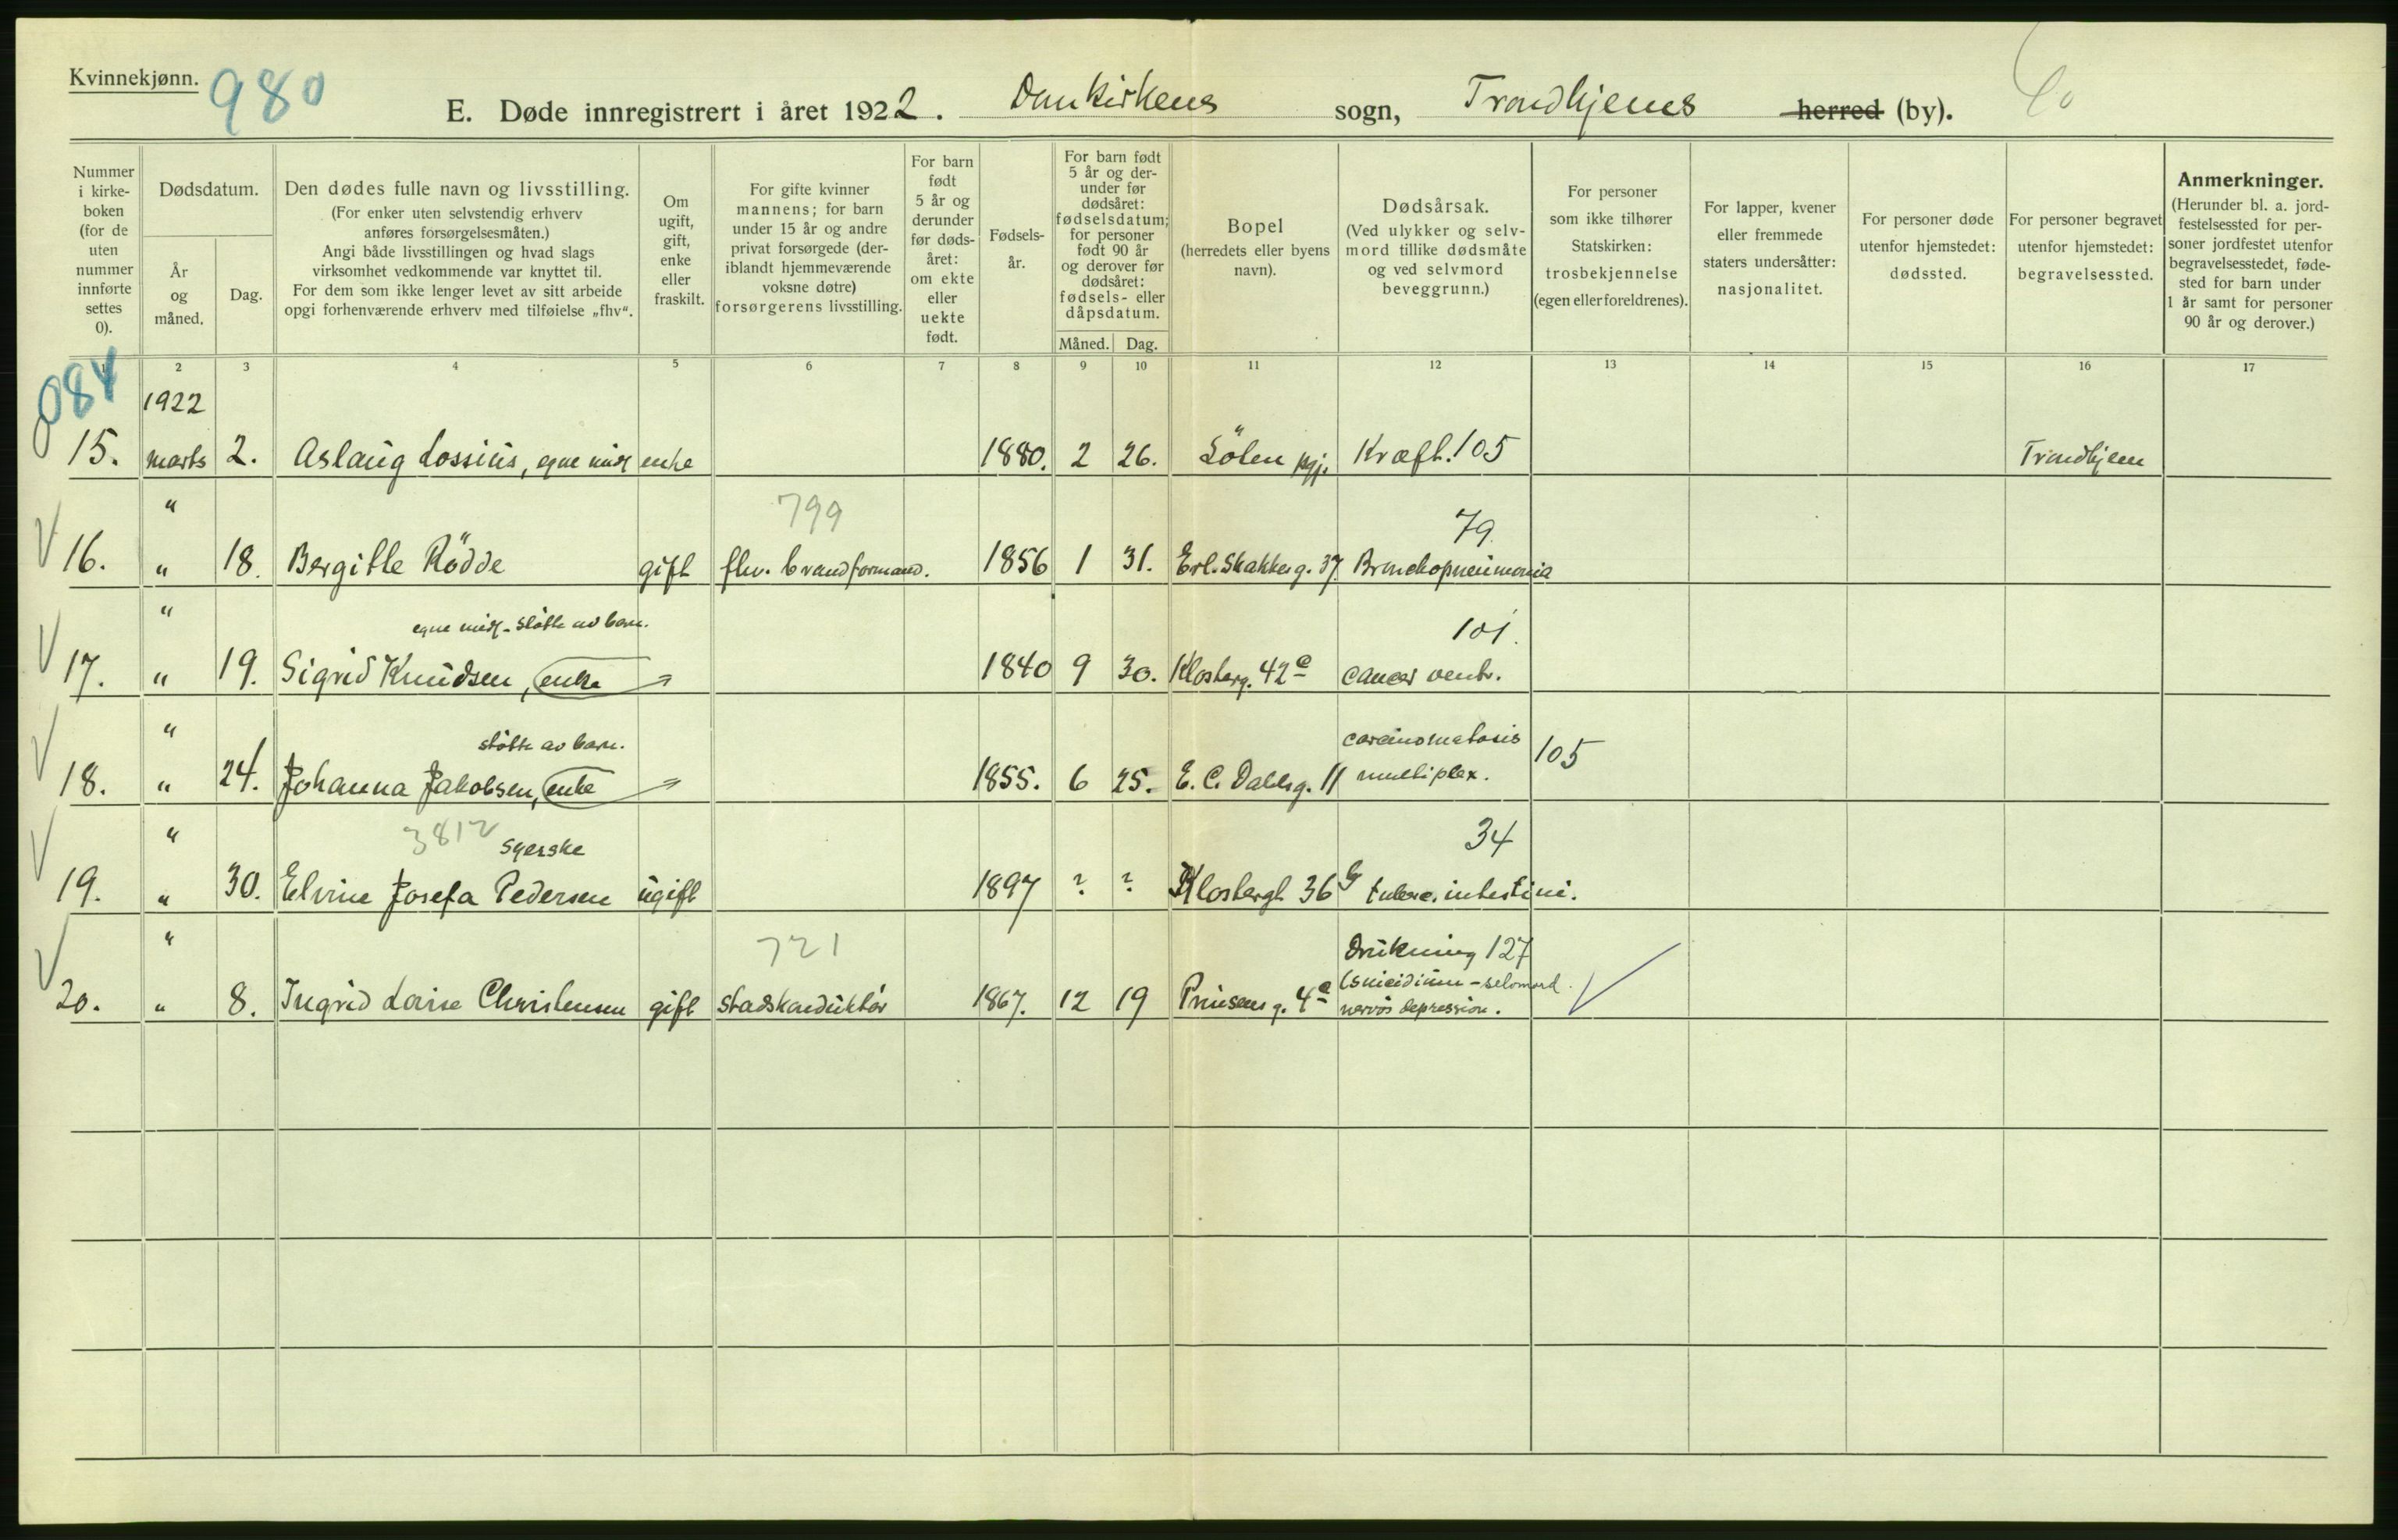 Kvinnekjønn.
980
E. Døde innregistrert i året 1922. Domkirkens sogn, Trondhjems herred (by).
Nummer i kirke-boken (for de uten nummer innførte settes 0).
Dødsdatum.
År og måned.
Dag.
Den dødes fulle navn og livsstilling.
(For enker uten selvstendig erhverv
anføres forsørgelsesmåten.)
Angi både livsstillingen og hvad slags
virksomhet vedkommende var knyttet til.
For dem som ikke lenger levet av sitt arbeide
opgi forhenværende erhverv med tilføielse „fhv“.
Om ugift, gift, enke eller fraskilt.
For gifte kvinner
mannens; for barn
under 15 år og andre
privat forsørgede (der-
iblandt hjemmeværende
voksne døtre)
forsørgerens livsstilling.
For barn født 5 år og derunder før døds-året: om ekte eller uekte født.
Fødsels-år.
For barn født
5 år og der-
under før
dødsåret:
fødselsdatum;
for personer
født 90 år
og derover før
dødsåret:
fødsels- eller
dåpsdatum.
Måned. Dag.
Bopel
(herredets eller byens
navn).
Dødsårsak.
(Ved ulykker og selv-
mord tillike dødsmåte
og ved selvmord
beveggrunn.)
For personer
som ikke tilhører
Statskirken:
trosbekjennelse
(egen eller foreldrenes).
For lapper, kvener
eller fremmede
staters undersåtter:
nasjonalitet.
For personer døde
utenfor hjemstedet:
dødssted.
For personer begravet
utenfor hjemstedet:
begravelsessted.
Anmerkninger.
(Herunder bl. a. jord-
festelsessted for per-
soner jordfestet utenfor
begravelsesstedet, føde-
sted for barn under
1 år samt for personer
90 år og derover.)
1 2 3 4 5 6 7 8 9 10 11 12 13 14 15 16 17
084
1922
15. marts 2. Aslaug Lossius, egne midl enke 1880. 2 26. pgj. Kræft. 105 Trondhjem
" 799 79.
16. " 18. Bergitte Rödde gift fhv. brandformand. 1856 1 31. Erl. Skakkes g. 37. Bronchopneumonia
" egne midl. støtte av barn. 101.
17. " 19. Sigrid Knudsen, enke 1840 9 30. Klosterg. 42 c cancer ventr.
" støtte av barn. carcinomatosis 105
18. " 24. Johanna Jakobsen, enke 1855. 6 25. E. C. Dahlsg. 11 multiplex.
" 3812 syerske 34
19. " 30. Elvine Josefa Pedersen ugift 1897 ? ? Klostergt 36 b tuberc. intestini.
" 721 Drukning 127
(suicidium - selvmord.
20. " 8. Ingrid Lovise Christensen gift stadskonduktør 1867. 12 19 Prinsens g. 4 c nervøs depression.